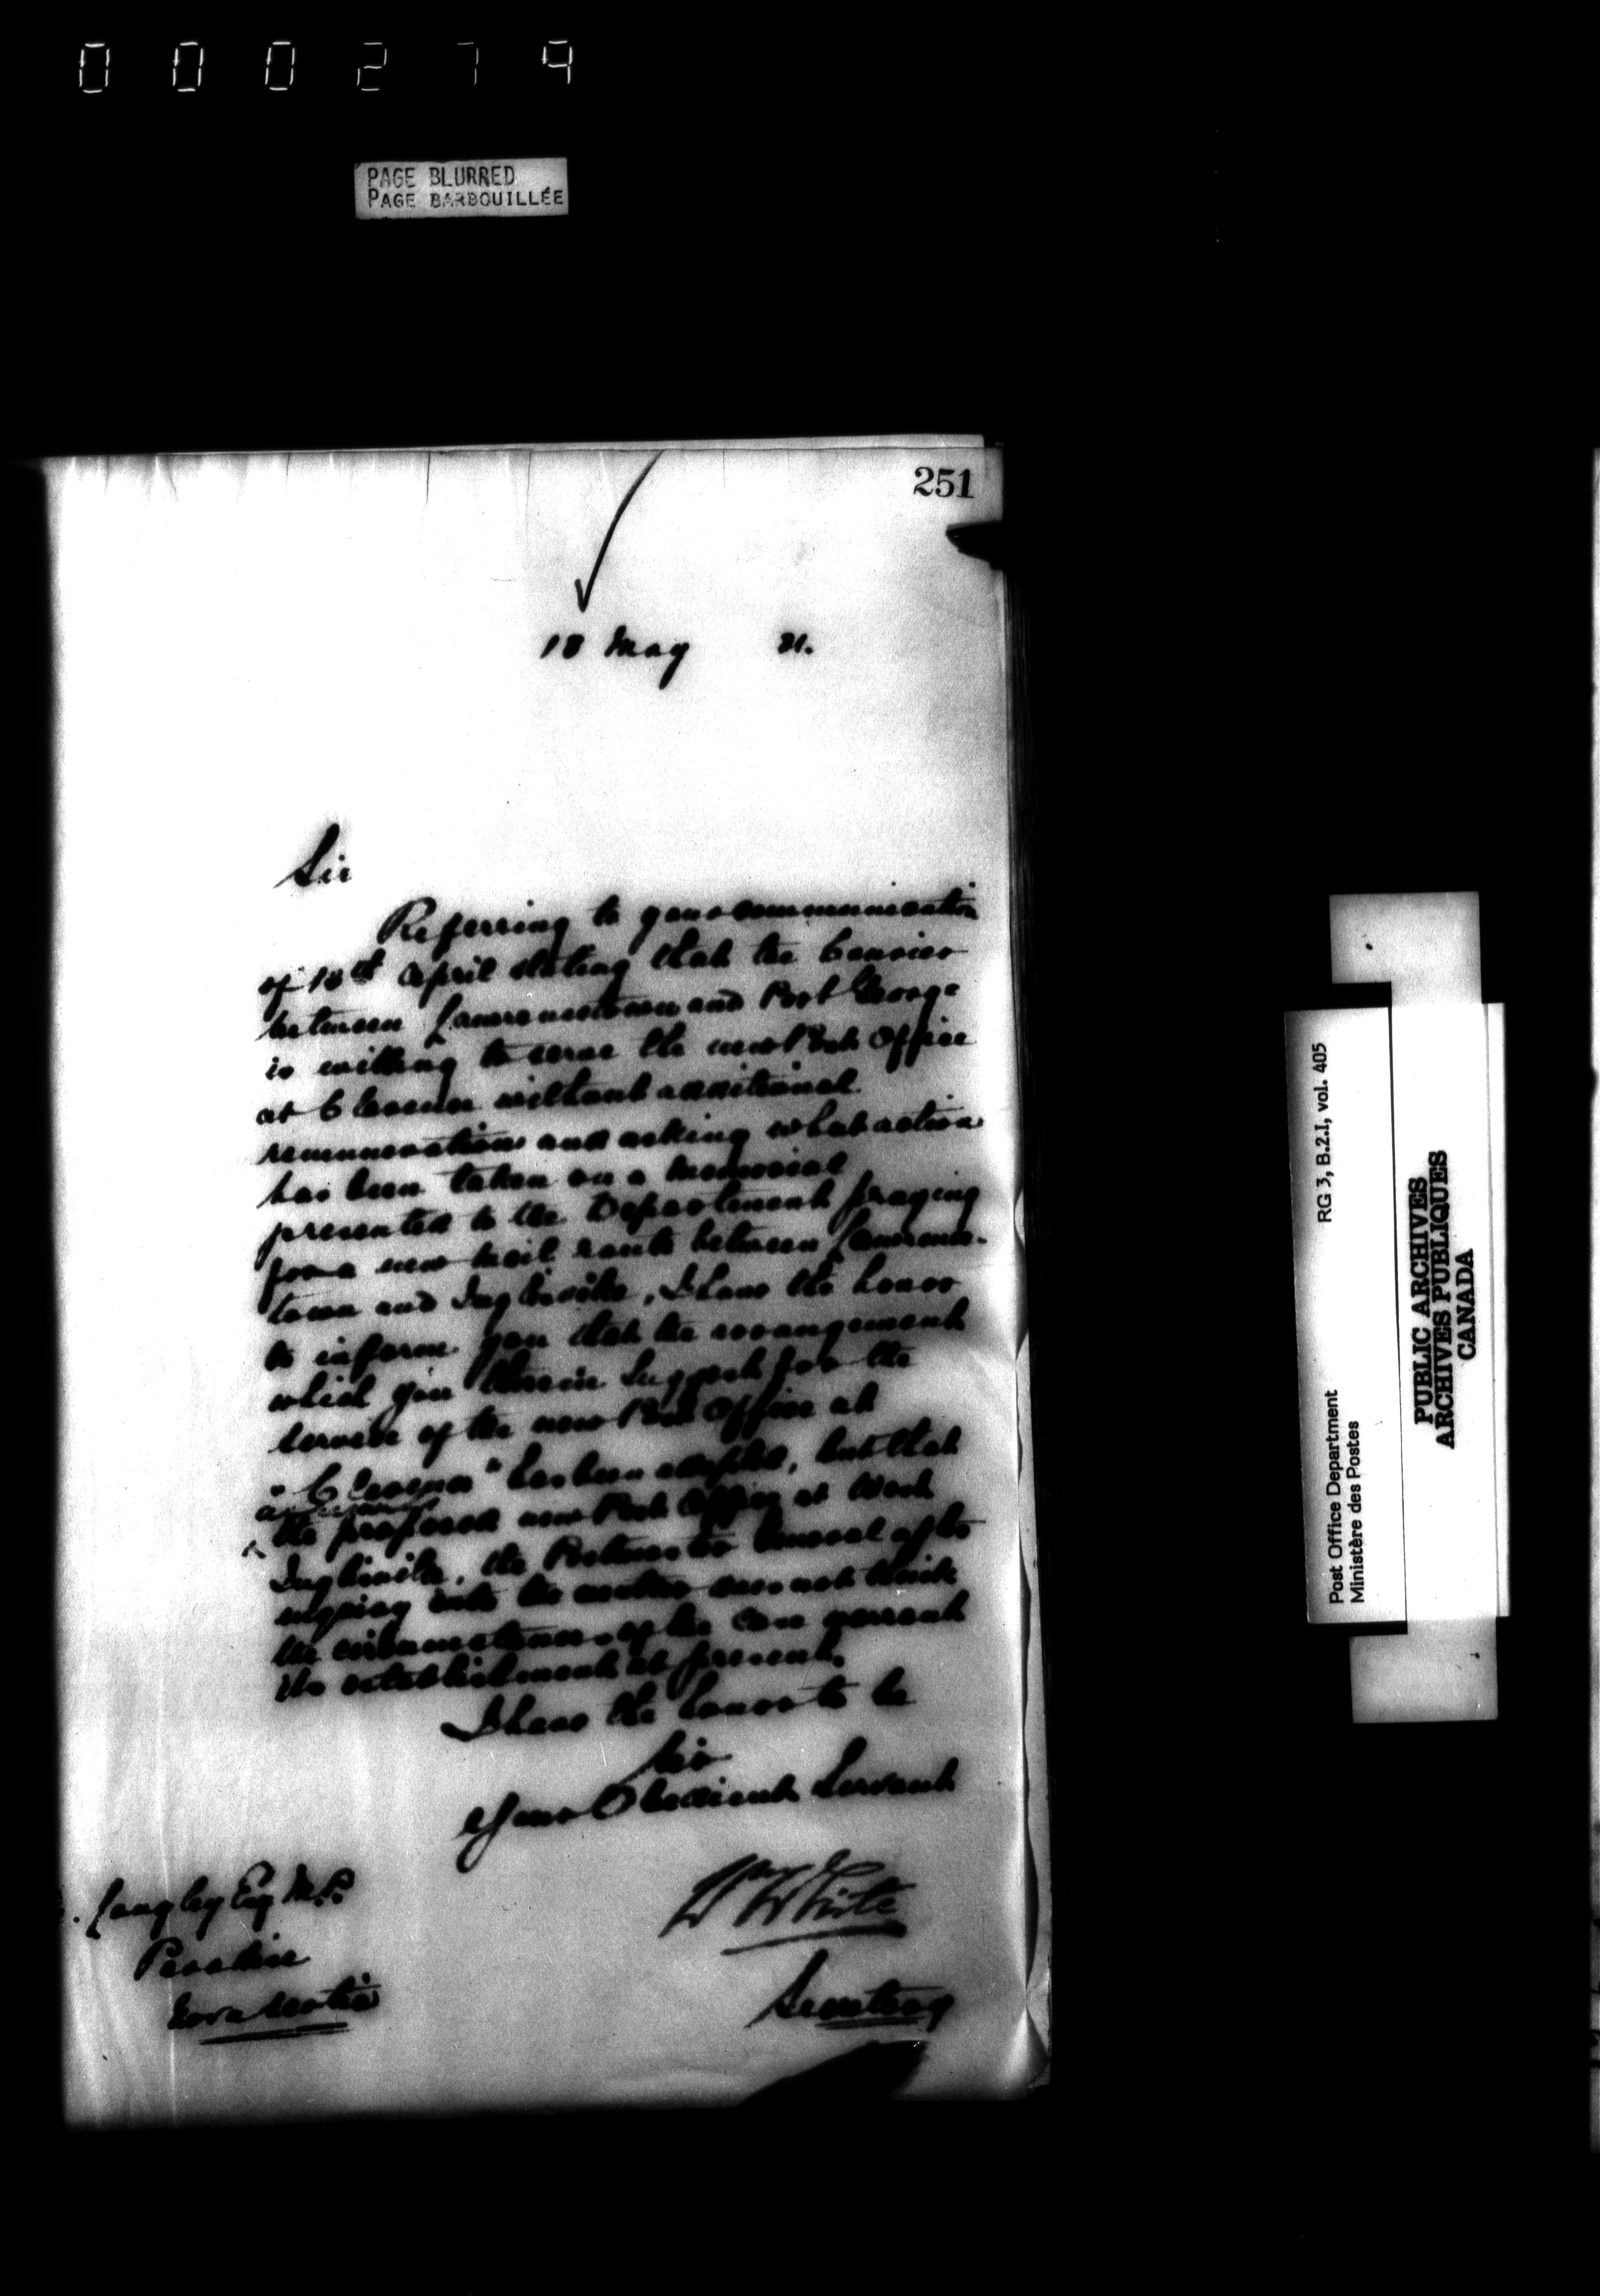 000279
PAGE BLURRED
PAGE BARBOUILLÉE
251
18 May 81.
Sir
Referring to your communication
of 18th April stating that the Courier
between Lawrencetown and Port George
is willing to serve the new Post Office
at Clarence without additional
remuneration and asking what action
has been taken on a memorial
presented to the Department praying
for a new mail route between Lawrence-
town and Inglisville, I have the honor
to inform you that the arrangement
which you therein suggest for the
service of the new Post Office at
"Clarence" has been adopted, but that
as regards
the proposed new Post Office at West
Inglisville, the Postmaster General after
enquiry into the matter does not think
the circumstances of the case warrant
its establishment at present.
I have the honor to be
Sir
Your Obedient Servant
Wm White
Secretary
Longley Esq M.P.
Paradise
Nova Scotia
RG 3, B.2.I, vol. 405
Post Office Department
Ministère des Postes
PUBLIC ARCHIVES
ARCHIVES PUBLIQUES
CANADA